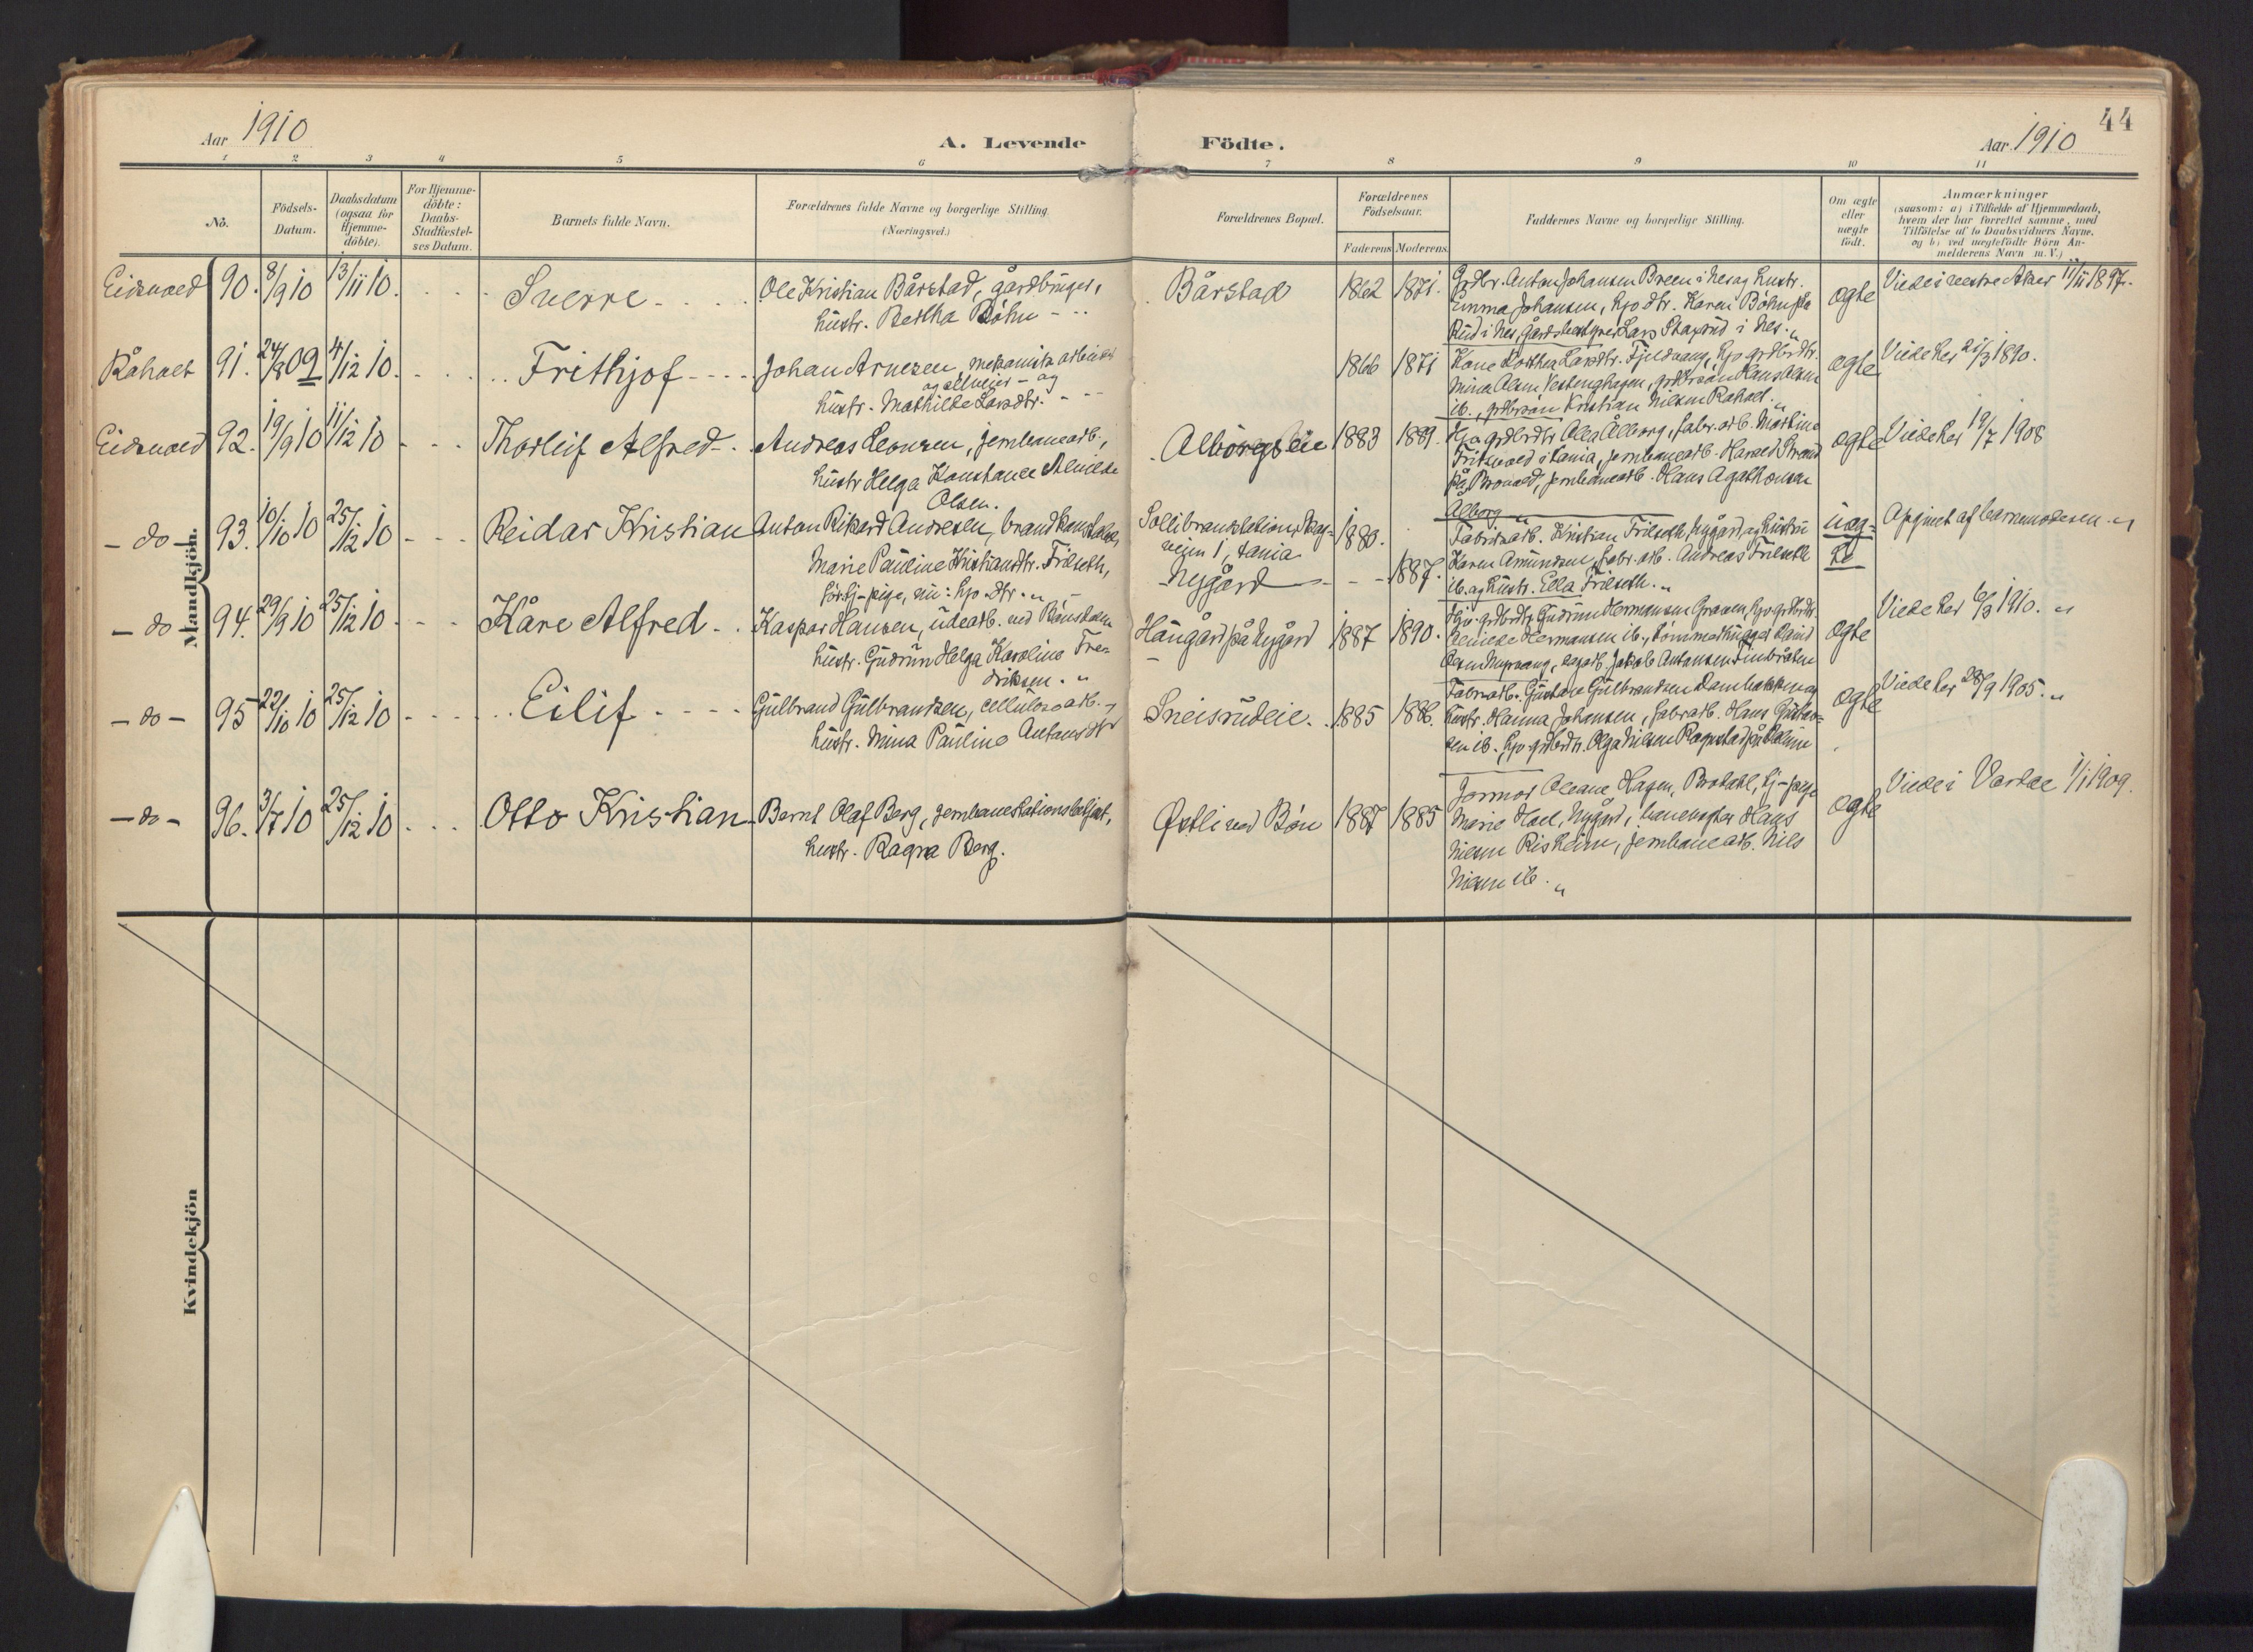 44
Aar 1910
A. Levende
Födte.
Aar 1910
1 2 3 4 5 6 7 8 9 10 11
No.
Födsels-
Datum.
Daabsdatum
(ogsaa for
Hjemme-
döbte).
For Hjemme-
döbte:
Daabs-
Stadfæstel-
ses Datum.
Barnets fulde Navn.
Forældrenes fulde Navne og borgerlige Stilling
(Næringsvei.)
Forældrenes Bopæl.
Forældrenes
Födselsaar.
Faderens Moderens
Faddernes Navne og borgerlige Stilling.
Om ægte
eller
uægte
födt.
Anmærkninger
(saasom: a) i Tilfælde af Hjemmedaab,
hvem der har forrettet samme, med
Tilföielse af to Daabsvidners Navne,
og b) ved uægtefödte Börn An-
melderens Navn m. V.)
Mandkjön.
Eidsvold 90. 8/9 10 13/11 10.
Sverre
Ole Kristian Bårstad, gårdbruger,
hustr. Bertha Böhn
Bårstad
1862 1871.
Grdbr. Anton Johansen Breen i Nes og hustr.
Emma Johansen, hjv. dtr. Karen Böhn på
Rud i Nes, gårdsbestyrer Lars i Nes.
ægte
Viede i vestre Aker 11/11 1897.
Råholt 91. 24/8 09 4/12 10.
Frithjof
Johan Arnesen, mekanisk arbeider
og
hustr. Mathilde Larsdtr.
1866 1871
Kone Dorthea Larsdtr. Fjeldvang, hjv. grdbrdtr.
Mina Olsen Vestenghagen, grdbrsön Hans Olsen
ib., grdbrsön Kristian Nilsen Råholt.
ægte
Viede her 21/3 1890.
Eidsvold 92. 19/9 10 11/12 10
Thorleif Alfred
Andreas Leonsen, jernbanearb.,
hustr Helga Konstance Almilde
Olsen.
Alborgseie
1883 1889.
Hjv grdbrdtr Olea Ålborg, fabr. arb. Martine
i tania, jernbanearb. Harald Strand
på, jernbanearb. Hans Agathonsen
Alborg
ægte
Viede her 19/7 1908
- do - 93. 10/10 10 25/12 10
Reidar Kristian
Anton Rikard Andresen, brandkonstabel,
Marie Pauline Kristiansdtr. Frilseth,
tj-pige, nu: hjv. dtr.
Sollibrandstation, Skov-
veien 1, tania
Nygård
1880.
1887.
Fabrikarb. Kristian Frilseth, Nygård, og hustru
Karen Amundsen, fabr. arb. Andreas Frilseth
ib. og hustr. Ella Frilseth.
uæg-
te
Opgivet af barnemoderen
- do - 94. 29/9 10 25/12 10
Kåre Alfred
Kaspar Hansen, udearb. ved Bönsdalen
hustr. Gudrun Helga Karoline Fre-
driksen.
Haugård på Nygård
1887 1890.
Hjv. grdbrdtr. Gudrun Hermansen, hjv. grdbrdtr.
Hermansen ib., tømmerhugger David
Olsen, dagarb. Jakob Antonsen Finbråten
ægte
Viede her 6/3 1910.
- do - 95 22/10 10 25/12 10
Eilif
Gulbrand Gulbrandsen, cellulosearb.
hustr. Mina Pauline Antonsdtr
Sneisrudeie.
1885 1886.
Fabrarb. Gustav Gulbrandsen Dambakken og
hustr. Hanna Johansen, fabrarb. Hans Gustav-
sen ib., hjv. grdbrdtr. Olga Nilsen
ægte
Viede her 28/9 1905.
- do - 96. 3/7 10 25/12 10
Otto Kristian
Bernt Olaf Berg, jernbanestationsbetjent,
hustr. Ragna Berg.
Østli ved Bön
1887 1885
Jormor Oleane Hagen, Brodahl, tj-pige
Marie Hoel, Nygård, banevogter Hans
Nilsen Risheim, jernbanearb. Nils
Nilsen ib.
ægte
Viede i Vardal 1/1 1909.
Kvindekjön